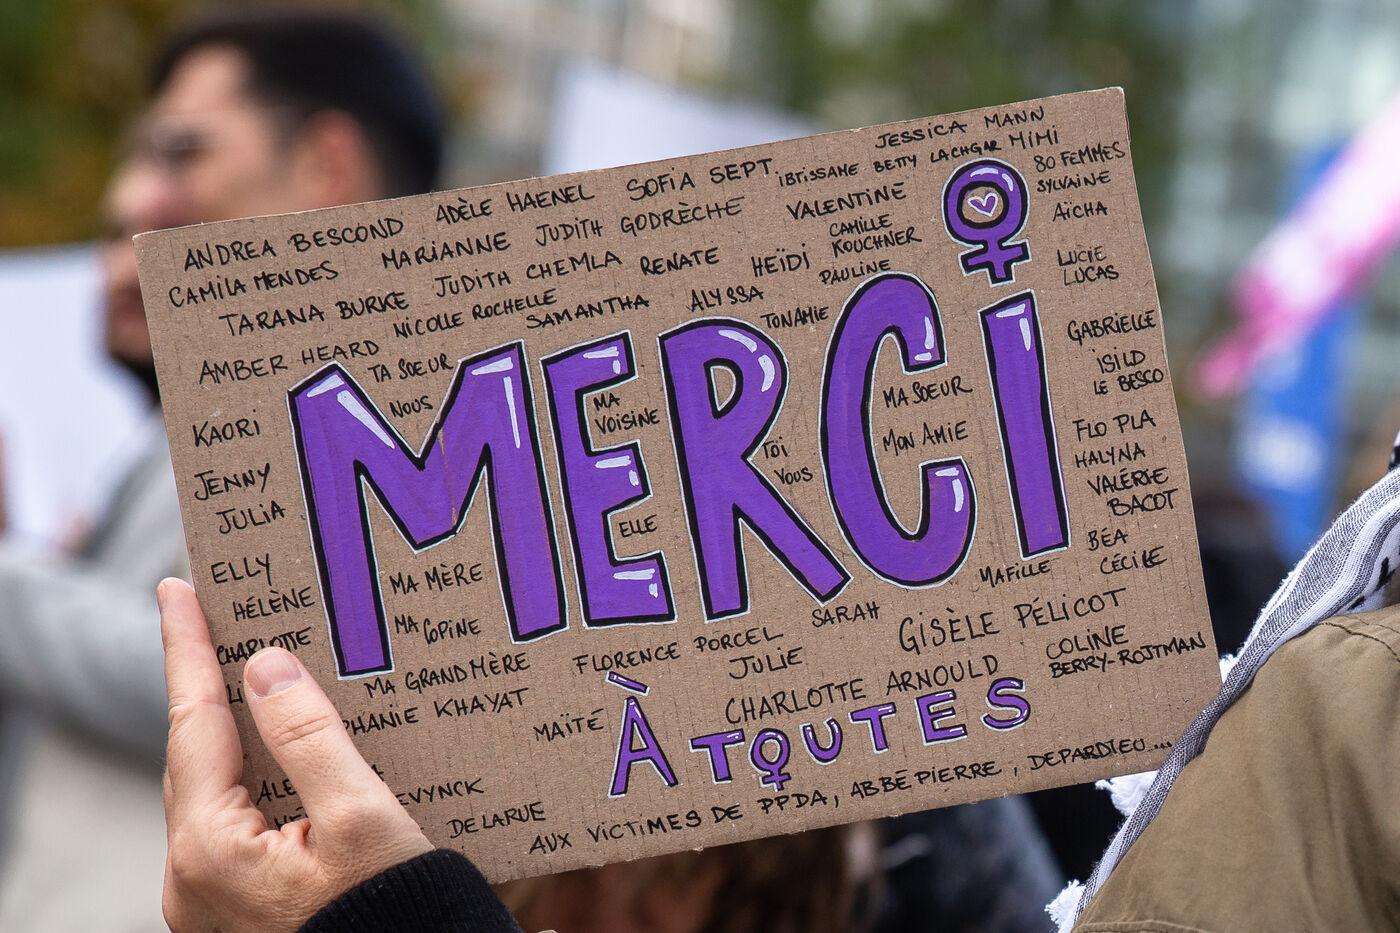 JESSICA MANN
ADÈLE HAENEL
SOFIA SEPT
IBTISSAME
BETTY LACHGAR
MIMI
80 FEMMES
ANDREA BESCOND
MARIANNE
JUDITH GODRÈCHE
VALENTINE
SYLVAINE
CAMILA MENDES
JUDITH CHEMLA
RENATE
HEÏDI
CAMILLE
KOUCHNER
AÏCHA
TARANA BURKE
NICOLLE ROCHELLE
SAMANTHA
ALYSSA
PAULINE
LUCIE
LUCAS
AMBER HEARD
TA SOEUR
TON AMIE
GABRIELLE
KAORI
NOUS
MERCI
MA
VOISINE
MA SOEUR
ISILD
LE BESCO
JENNY
TOI
VOUS
MON AMIE
FLO PLA
JULIA
ELLE
HALYNA
VALÉRIE
BACOT
ELLY
MA MÈRE
MA FILLE
BÉA
CÉCILE
HÉLÈNE
MA COPINE
SARAH
GISÈLE PÉLICOT
CHARLOTTE
MA GRAND MÈRE
FLORENCE PORCEL
JULIE
COLINE
BERRY-ROJTMAN
PHANIE KHAYAT
MAÏTÉ
CHARLOTTE ARNOULD
À TOUTES
ALE
EVYNCK
DELARUE
AUX VICTIMES DE PPDA, ABBÉ PIERRE, DEPARDIEU...